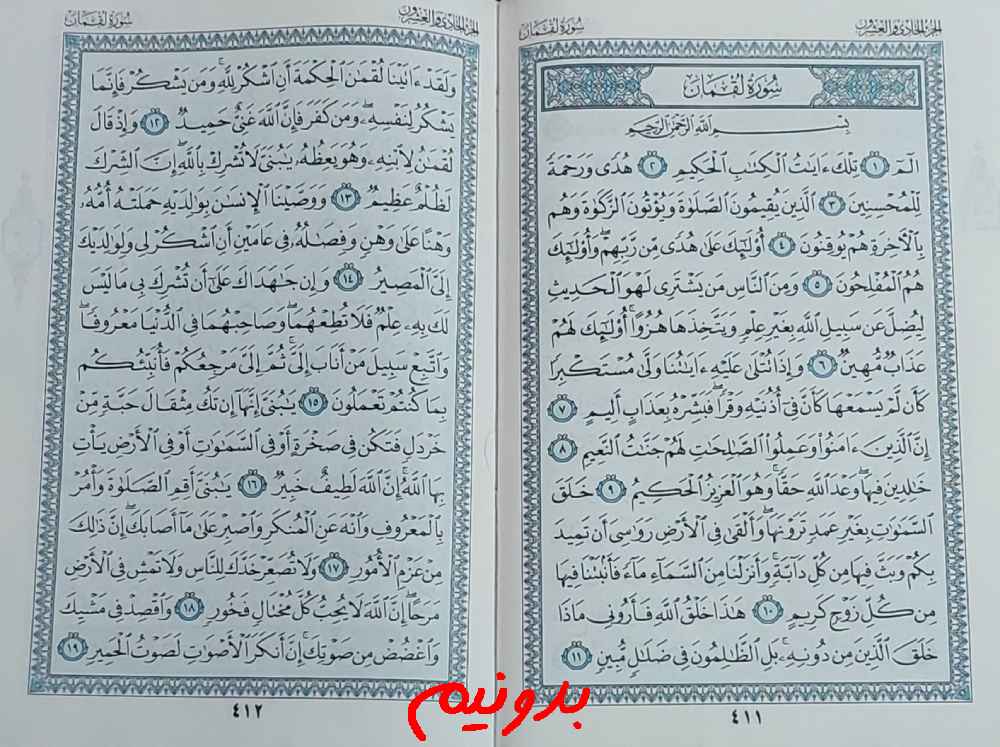 الجزء الحادي والعشرون
سورة لقمان
سُورَةُ لُقْمَان
بِسْمِ اللَّهِ الرَّحْمَٰنِ الرَّحِيمِ
الٓمٓ ١ تِلْكَ ءَايَٰتُ ٱلْكِتَٰبِ ٱلْحَكِيمِ ٢ هُدًى وَرَحْمَةً
لِّلْمُحْسِنِينَ ٣ ٱلَّذِينَ يُقِيمُونَ ٱلصَّلَوٰةَ وَيُؤْتُونَ ٱلزَّكَوٰةَ وَهُم
بِٱلْأَخِرَةِ هُمْ يُوقِنُونَ ٤ أُو۟لَٰٓئِكَ عَلَىٰ هُدًى مِّن رَّبِّهِمْ ۖ وَأُو۟لَٰٓئِكَ
هُمُ ٱلْمُفْلِحُونَ ٥ وَمِنَ ٱلنَّاسِ مَن يَشْتَرِى لَهْوَ ٱلْحَدِيثِ
لِيُضِلَّ عَن سَبِيلِ ٱللَّهِ بِغَيْرِ عِلْمٍ وَيَتَّخِذَهَا هُزُوًا ۚ أُو۟لَٰٓئِكَ لَهُمْ
عَذَابٌ مُّهِينٌ ٦ وَإِذَا تُتْلَىٰ عَلَيْهِ ءَايَٰتُنَا وَلَّىٰ مُسْتَكْبِرًا
كَأَن لَّمْ يَسْمَعْهَا كَأَنَّ فِىٓ أُذُنَيْهِ وَقْرًا ۖ فَبَشِّرْهُ بِعَذَابٍ أَلِيمٍ ٧
إِنَّ ٱلَّذِينَ ءَامَنُوا۟ وَعَمِلُوا۟ ٱلصَّٰلِحَٰتِ لَهُمْ جَنَّٰتُ ٱلنَّعِيمِ ٨
خَٰلِدِينَ فِيهَا ۖ وَعْدَ ٱللَّهِ حَقًّا ۚ وَهُوَ ٱلْعَزِيزُ ٱلْحَكِيمُ ٩ خَلَقَ
ٱلسَّمَٰوَٰتِ بِغَيْرِ عَمَدٍ تَرَوْنَهَا ۖ وَأَلْقَىٰ فِى ٱلْأَرْضِ رَوَٰسِىَ أَن تَمِيدَ
بِكُمْ وَبَثَّ فِيهَا مِن كُلِّ دَآبَّةٍ ۚ وَأَنزَلْنَا مِنَ ٱلسَّمَآءِ مَآءً فَأَنۢبَتْنَا فِيهَا
مِن كُلِّ زَوْجٍ كَرِيمٍ ١٠ هَٰذَا خَلْقُ ٱللَّهِ فَأَرُونِى مَاذَا
خَلَقَ ٱلَّذِينَ مِن دُونِهِۦ ۚ بَلِ ٱلظَّٰلِمُونَ فِى ضَلَٰلٍ مُّبِينٍ ١١
٤١١
الجزء الحادي والعشرون
سورة لقمان
وَلَقَدْ ءَاتَيْنَا لُقْمَٰنَ ٱلْحِكْمَةَ أَنِ ٱشْكُرْ لِلَّهِ ۚ وَمَن يَشْكُرْ فَإِنَّمَا
يَشْكُرُ لِنَفْسِهِۦ ۖ وَمَن كَفَرَ فَإِنَّ ٱللَّهَ غَنِىٌّ حَمِيدٌ ١٢ وَإِذْ قَالَ
لُقْمَٰنُ لِٱبْنِهِۦ وَهُوَ يَعِظُهُۥ يَٰبُنَىَّ لَا تُشْرِكْ بِٱللَّهِ ۖ إِنَّ ٱلشِّرْكَ
لَظُلْمٌ عَظِيمٌ ١٣ وَوَصَّيْنَا ٱلْإِنسَٰنَ بِوَٰلِدَيْهِ حَمَلَتْهُ أُمُّهُۥ
وَهْنًا عَلَىٰ وَهْنٍ وَفِصَٰلُهُۥ فِى عَامَيْنِ أَنِ ٱشْكُرْ لِى وَلِوَٰلِدَيْكَ
إِلَىَّ ٱلْمَصِيرُ ١٤ وَإِن جَٰهَدَاكَ عَلَىٰٓ أَن تُشْرِكَ بِى مَا لَيْسَ
لَكَ بِهِۦ عِلْمٌ فَلَا تُطِعْهُمَا ۖ وَصَاحِبْهُمَا فِى ٱلدُّنْيَا مَعْرُوفًا ۖ
وَٱتَّبِعْ سَبِيلَ مَنْ أَنَابَ إِلَىَّ ۚ ثُمَّ إِلَىَّ مَرْجِعُكُمْ فَأُنَبِّئُكُم
بِمَا كُنتُمْ تَعْمَلُونَ ١٥ يَٰبُنَىَّ إِنَّهَآ إِن تَكُ مِثْقَالَ حَبَّةٍ مِّنْ
خَرْدَلٍ فَتَكُن فِى صَخْرَةٍ أَوْ فِى ٱلسَّمَٰوَٰتِ أَوْ فِى ٱلْأَرْضِ يَأْتِ
بِهَا ٱللَّهُ ۚ إِنَّ ٱللَّهَ لَطِيفٌ خَبِيرٌ ١٦ يَٰبُنَىَّ أَقِمِ ٱلصَّلَوٰةَ وَأْمُرْ
بِٱلْمَعْرُوفِ وَٱنْهَ عَنِ ٱلْمُنكَرِ وَٱصْبِرْ عَلَىٰ مَآ أَصَابَكَ ۖ إِنَّ ذَٰلِكَ
مِنْ عَزْمِ ٱلْأُمُورِ ١٧ وَلَا تُصَعِّرْ خَدَّكَ لِلنَّاسِ وَلَا تَمْشِ فِى ٱلْأَرْضِ
مَرَحًا ۖ إِنَّ ٱللَّهَ لَا يُحِبُّ كُلَّ مُخْتَالٍ فَخُورٍ ١٨ وَٱقْصِدْ فِى مَشْيِكَ
وَٱغْضُضْ مِن صَوْتِكَ ۚ إِنَّ أَنكَرَ ٱلْأَصْوَٰتِ لَصَوْتُ ٱلْحَمِيرِ ١٩
٤١٢
بدونیم